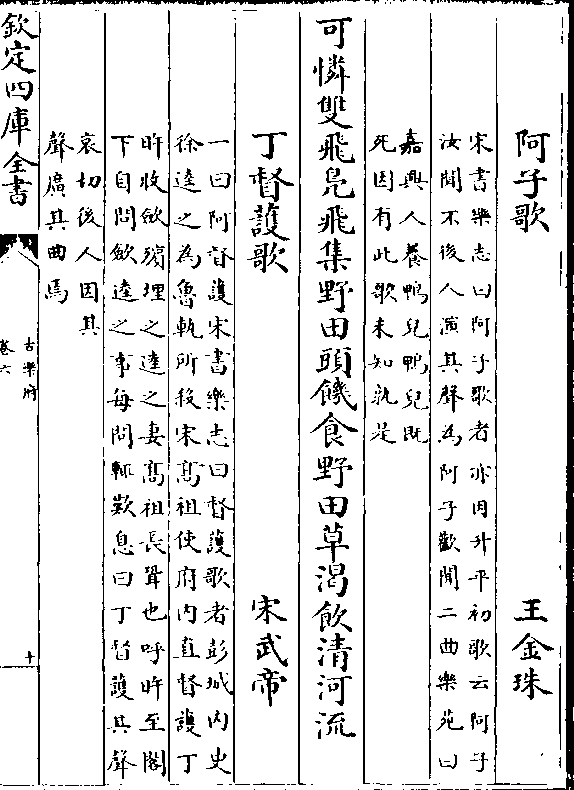 阿子歌　王金珠
宋書樂志曰阿子歌者亦因升平初歌云阿子
汝聞不後人演其聲為阿子歡聞二曲樂苑曰
嘉興人養鴨兒鴨兒既
死因有此歌未知孰是
可憐雙飛鳬飛集野田頭饑食野田草渴飲清河流
丁督護歌　宋武帝
一曰阿督護宋書樂志曰督護歌者彭城内史
徐逵之為魯軌所殺宋髙祖使府内直督護丁
旿收斂殯埋之逵之妻髙祖長女也呼旿至閣
下自問斂逵之事每問輒歎息曰丁督護其聲
哀切後人因其
聲廣其曲焉
欽定四庫全書　古樂府
卷六　十